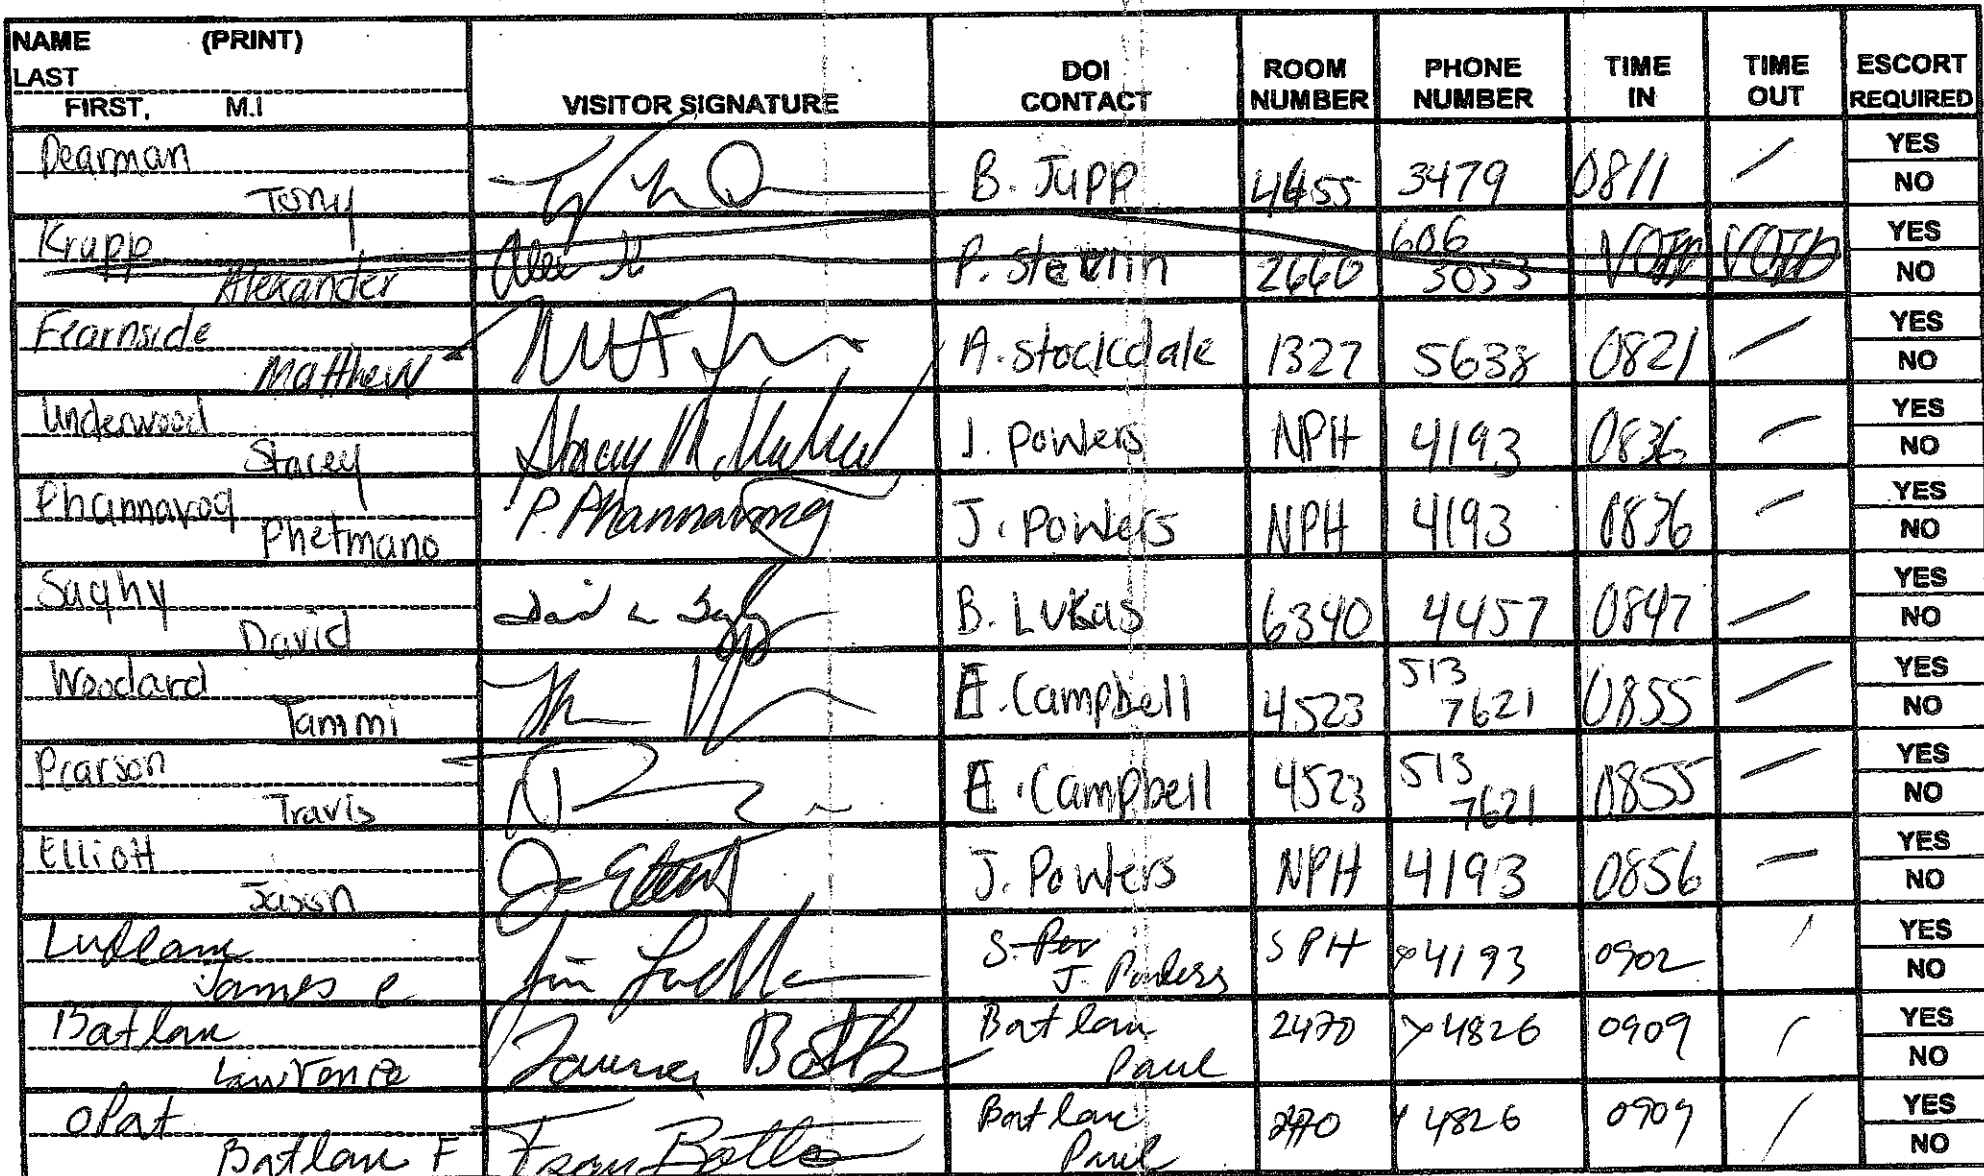 NAME (PRINT)
LAST
FIRST, M.I
VISITOR SIGNATURE
DOI
CONTACT
ROOM
NUMBER
PHONE
NUMBER
TIME
IN
TIME
OUT
ESCORT
REQUIRED
Dearman
Tony
B. Jupp
4455
3479
0811
YES
NO
Krupp
Alexander
2660
606
5053
VOID
VOID
YES
NO
Fearnside
Matthew
A. Stockdale
1327
5638
0821
YES
NO
Underwood
Stacey
J. Powers
NPH
4193
0836
YES
NO
Phannavog
Phetmano
P. Phannavong
J. Powers
NPH
4193
0836
YES
NO
Saghy
David
B. Lukas
6340
4457
0847
YES
NO
Woodard
Tammi
E. Campbell
4523
513
7621
0855
YES
NO
Pearson
Travis
E. Campbell
4523
513
7621
0855
YES
NO
Elliott
Jason
J. Powers
NPH
4193
0856
YES
NO
Ludlam
James e
Jim
J. Powers
SPH
x4193
0902
YES
NO
Batlan
Lawrence
Batlan
Paul
2470
x4826
0909
YES
NO
oPat
Batlan F
Fran Batlan
Batlan
Paul
4826
0909
YES
NO